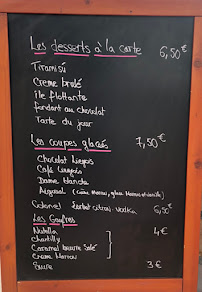 Les desserts à la carte 6,50€
Tiramisù
Creme brulé
île flottante
fondant au chocolat
Tarte du jour
Les coupes glacés 7,50€
Chocolat Liegois
Café Liegois
Dame blanche
Colonel Sorbet citron-vodka 6,50€
Les Gaufres
Nutella 4€
Chantilly
Caramel beurre Salé
Creme Marron
Sucre 3€